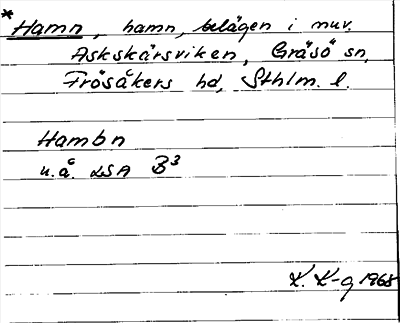 * Hamn, hamn, belägen i nuv.
Askskärsviken, Gräsö sn,
Frösåkers hd, Sthlm. l.
Hambn
u.å. LSA B³
K. K-g 1968